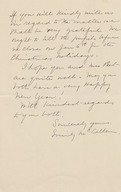 If you will kindly write me
in regard to the matter we
shall be very grateful. We
ought to tell the pupils before
we close our for the
Christmas holidays.
I hope you and Mrs.
are quite well. May you
both have a very Happy
New Year!
With kindest regards
to you both,
Sincerely yours
Emily M.